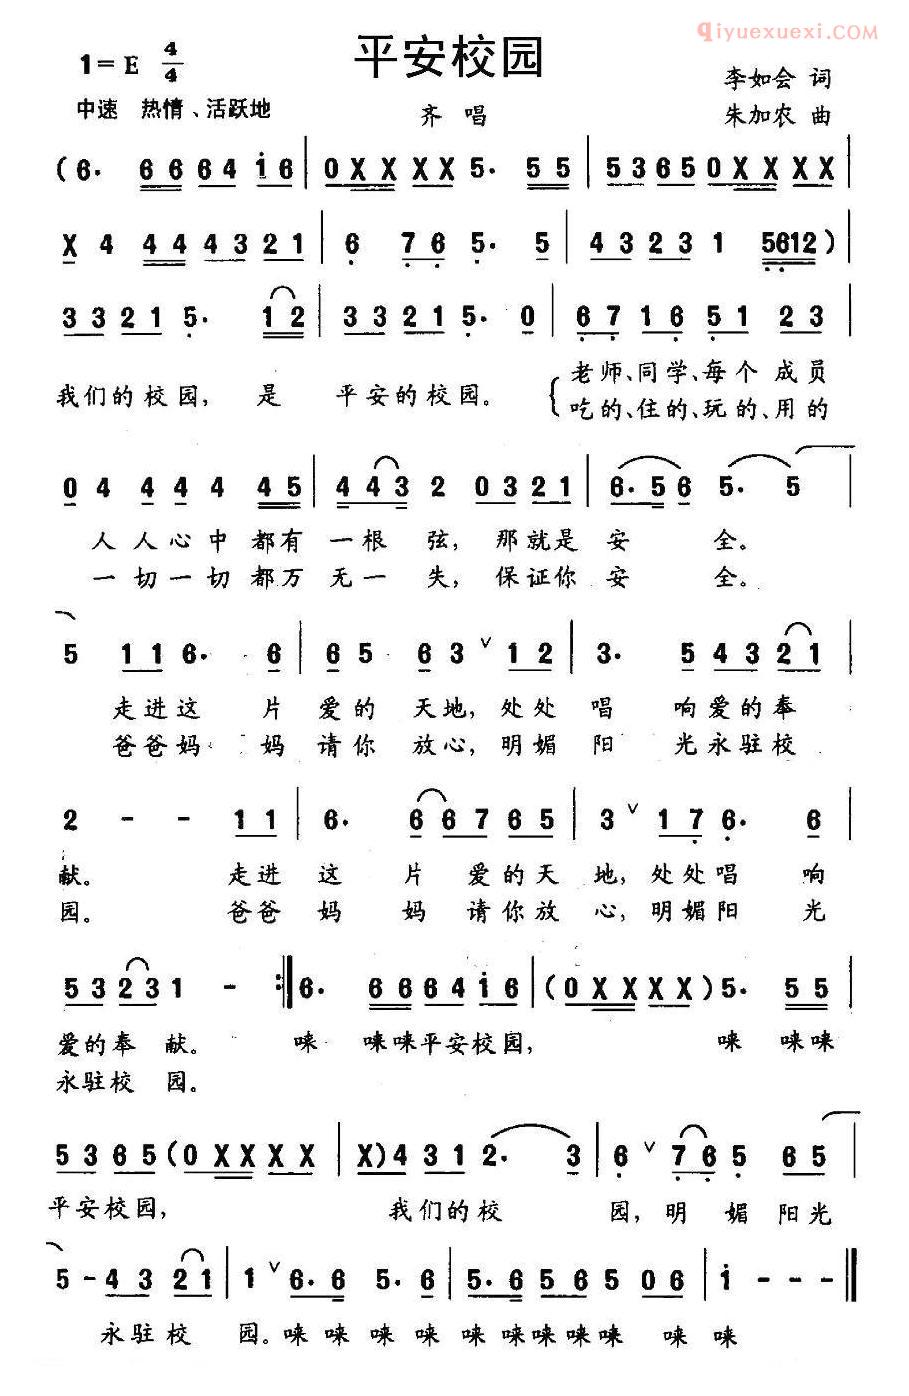 qiyuexuexi.COM
平安校园
1=E 4/4
李如会 词
中速 热情、活跃地
齐 唱
朱加农 曲
(6· 6 6 6 4 i 6 | 0 X X X X 5· 5 5 | 5 3 6 5 0 X X X X |
X 4 4 4 4 3 2 1 | 6 7 6 5· 5 | 4 3 2 3 1 5612) |
3 3 2 1 5· 1 2 | 3 3 2 1 5· 0 | 6 7 1 6 5 1 2 3 |
我们的校园, 是 平安的校园。 老师、同学、每个 成员
吃的、住的、玩的、用的
0 4 4 4 4 4 5 | 4 4 3 2 0 3 2 1 | 6· 5 6 5· 5 |
人 人 心 中 都有 一 根 弦, 那就是 安 全。
一 切 一 切 都万 无 一 失, 保证你 安 全。
5 1 1 6· 6 | 6 5 6 3 ∨ 1 2 | 3· 5 4 3 2 1 |
走进这 片 爱 的 天地, 处处 唱 响爱的奉
爸爸妈 妈 请你 放心, 明媚 阳 光永驻校
2 - - 1 1 | 6· 6 6 7 6 5 | 3 ∨ 1 7 6· 6 |
献。 走进 这 片 爱的天 地, 处处唱 响
园。 爸爸 妈 妈 请你放 心, 明媚阳 光
5 3 2 3 1 - :‖ 6· 6 6 6 4 i 6 | (0 X X X X) 5· 5 5 |
爱的奉 献。 唻 唻唻平安校园, 唻 唻唻
永驻校 园。
5 3 6 5 (0 X X X X | X) 4 3 1 2· 3 | 6 ∨ 7 6 5 6 5 |
平安校园, 我们的校 园, 明 媚 阳光
5 - 4 3 2 1 | 1 ∨ 6· 6 5· 6 | 5· 6 5 6 5 0 6 | i - - - ‖
永 驻 校 园。唻 唻 唻 唻 唻 唻唻唻 唻 唻 唻